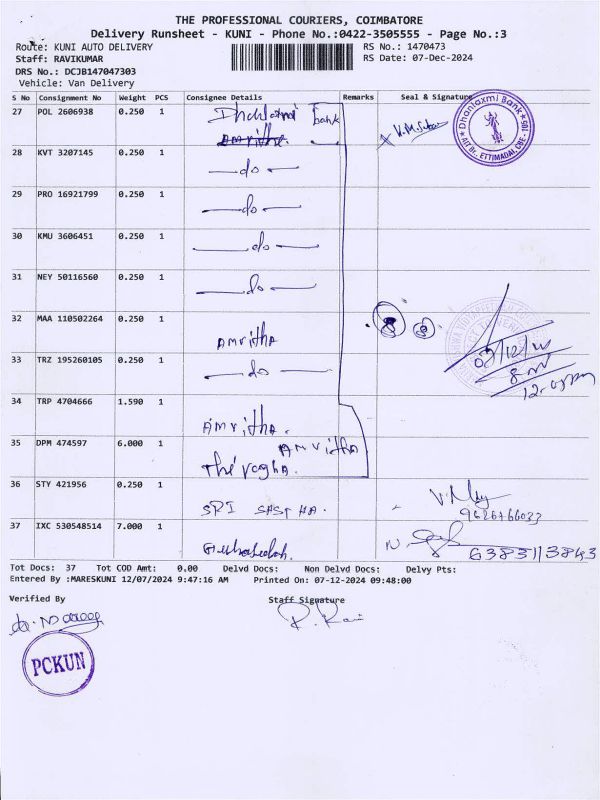 THE PROFESSIONAL COURIERS, COIMBATORE
Delivery Runsheet - KUNI - Phone No.:0422-3505555 - Page No.:3
Route: KUNI AUTO DELIVERY
RS No.: 1470473
Staff: RAVIKUMAR
RS Date: 07-Dec-2024
DRS No.: DCJB147047303
Vehicle: Van Delivery
S No Consignment No Weight PCS Consignee Details Remarks Seal & Signature
27 POL 2606938 0.250 1 bank
Dhanlaxmi Bank
ETTIMADAI, CBE - 105
28 KVT 3207145 0.250 1 —do—
29 PRO 16921799 0.250 1 —do—
30 KMU 3606451 0.250 1 —do—
31 NEY 50116560 0.250 1 —do—
32 MAA 110502264 0.250 1 Amritha
33 TRZ 195260105 0.250 1 —do—
34 TRP 4704666 1.590 1 Amritha.
35 DPM 474597 6.000 1 Amritha
36 STY 421956 0.250 1 SRI SASTHA.
37 IXC 530548514 7.000 1 6383113843
Tot Docs: 37 Tot COD Amt: 0.00 Delvd Docs: Non Delvd Docs: Delvy Pts:
Entered By :MARESKUNI 12/07/2024 9:47:16 AM Printed On: 07-12-2024 09:48:00
Verified By
Staff Signature
R. Ravi
PCKUN